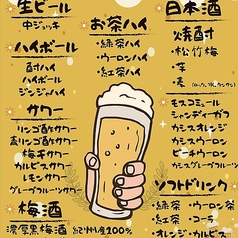 生ビール
中ジョッキ
ハイボール
酎ハイ
ハイボール
ジンジャーハイ
サワー
リンゴ酢サワー
梅干サワー
カルピスサワー
レモンサワー
グレープフルーツサワー
梅酒
濃厚黒梅酒 紀州産100%
お茶ハイ
・緑茶ハイ
・ウーロンハイ
・紅茶ハイ
日本酒
焼酎
・松竹梅
・芋
・麦
モスコミュール
シャンディーガフ
カシスオレンジ
カシスウーロン
ピーチウーロン
カシスグレープフルーツ
ソフトドリンク
・緑茶・ウーロン茶
・紅茶・コーラ
・オレンジ・カルピス